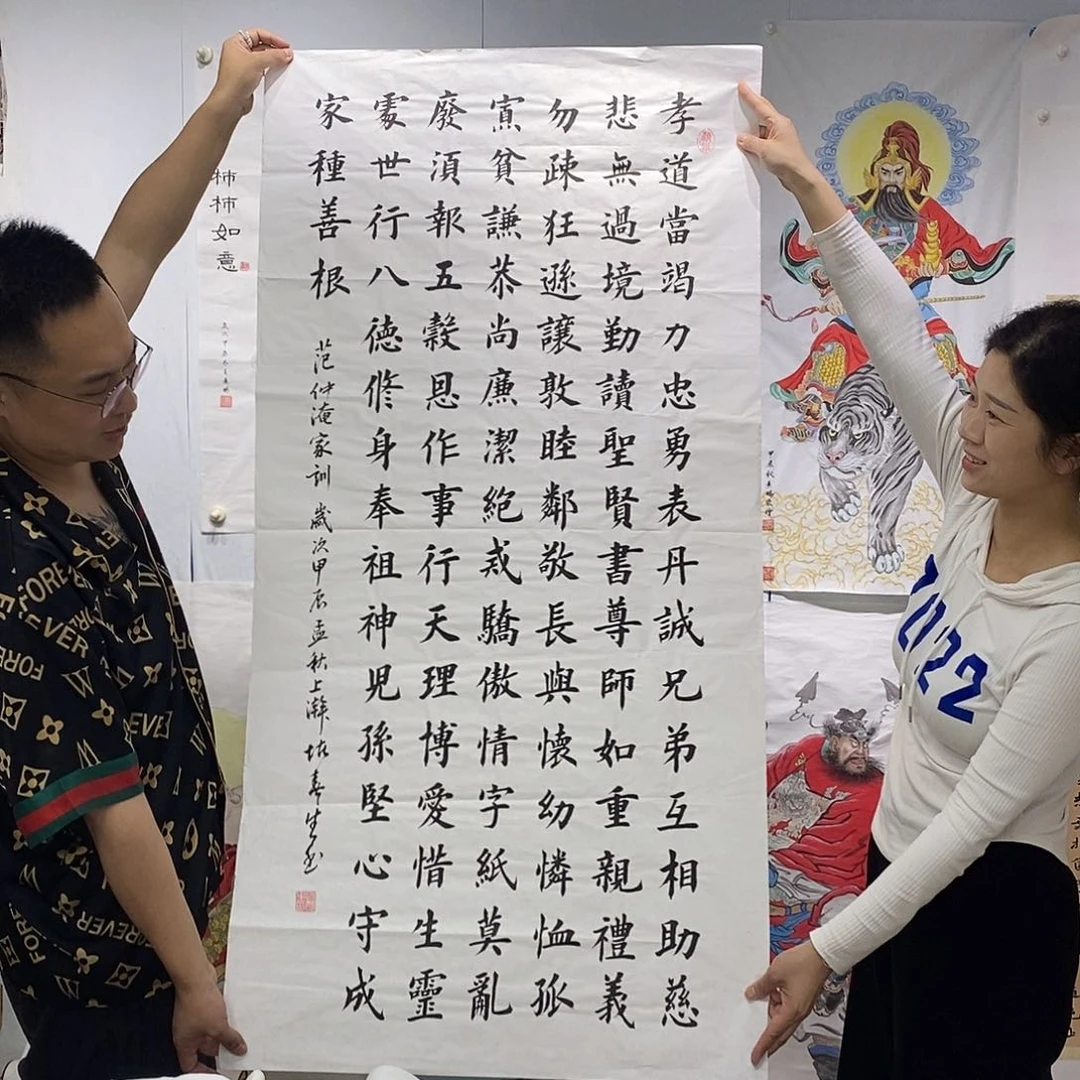 孝道當竭力忠勇表丹誠兄弟互相助慈
悲無過境勤讀聖賢書尊師如重親禮義
勿疎狂遜讓敦睦鄰敬長與懷幼憐恤孤
寡貧謙恭尚廉潔絶戒驕傲情字紙莫亂
廢湏報五穀恩作事行天理博愛惜生靈
處世行八德修身奉祖神児孫堅心守成
家種善根
范仲淹家訓 歲次甲辰孟秋上澣
柿柿如意
FOREVER
FOREVER
FOREVER
2022